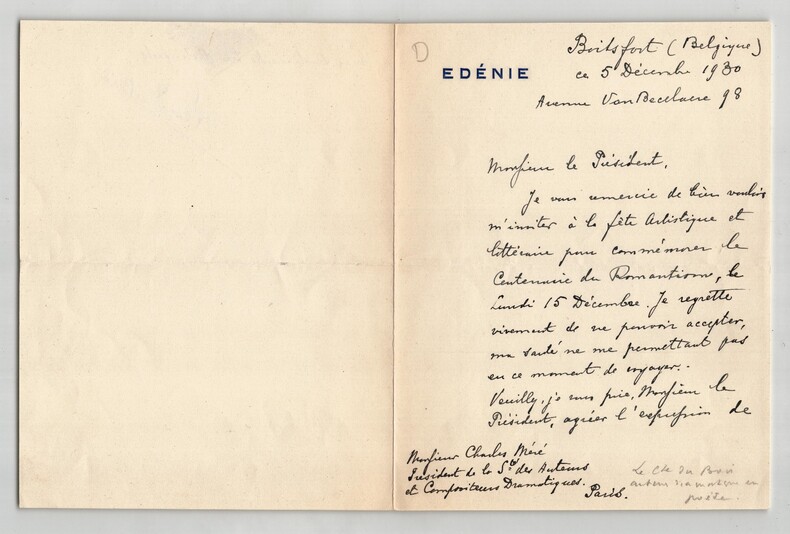 D
EDÉNIE
Boitsfort (Belgique)
ce 5 Décembre 1930
Avenue Van Becelaere 98
Monsieur le Président,
Je vous remercie de bien vouloir
m'inviter à la fête Artistique et
littéraire pour commémorer le
Centenaire du Romantisme, le
Lundi 15 Décembre. Je regrette
vivement de ne pouvoir accepter,
ma santé ne me permettant pas
en ce moment de voyager..
Veuillez, je vous prie, Monsieur le
Président, agréer l'expression de
Monsieur Charles Méré
Président de la Sté des Auteurs
et Compositeurs Dramatiques.
Paris.
Le Cte du Bois
auteur dramatique
poète.